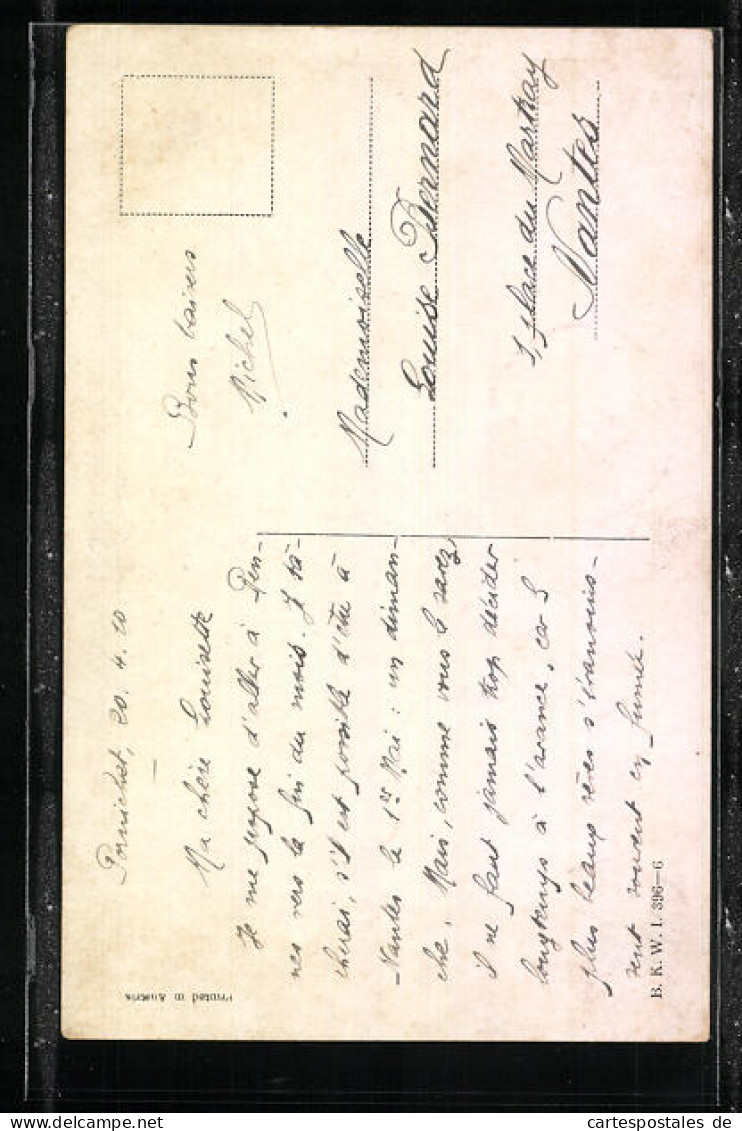 Pornichet, 20.4.20
Ma chère Louisette
Je me propose d'aller à Ren-
nes vers la fin du mois. Je tâ-
cherai, s'il est possible d'être à
Nantes le 1er Mai : un diman-
che. Mais, comme vous le savez
il ne faut jamais trop décider
longtemps à l'avance, car les
plus beaux rêves s'évanouis-
sent souvent en fumée.
Bons baisers
Michel
Mademoiselle
Louise Bernard
place du Martray
Nantes
Printed in Austria
B. K. W. I. 396-6
cartespostales de